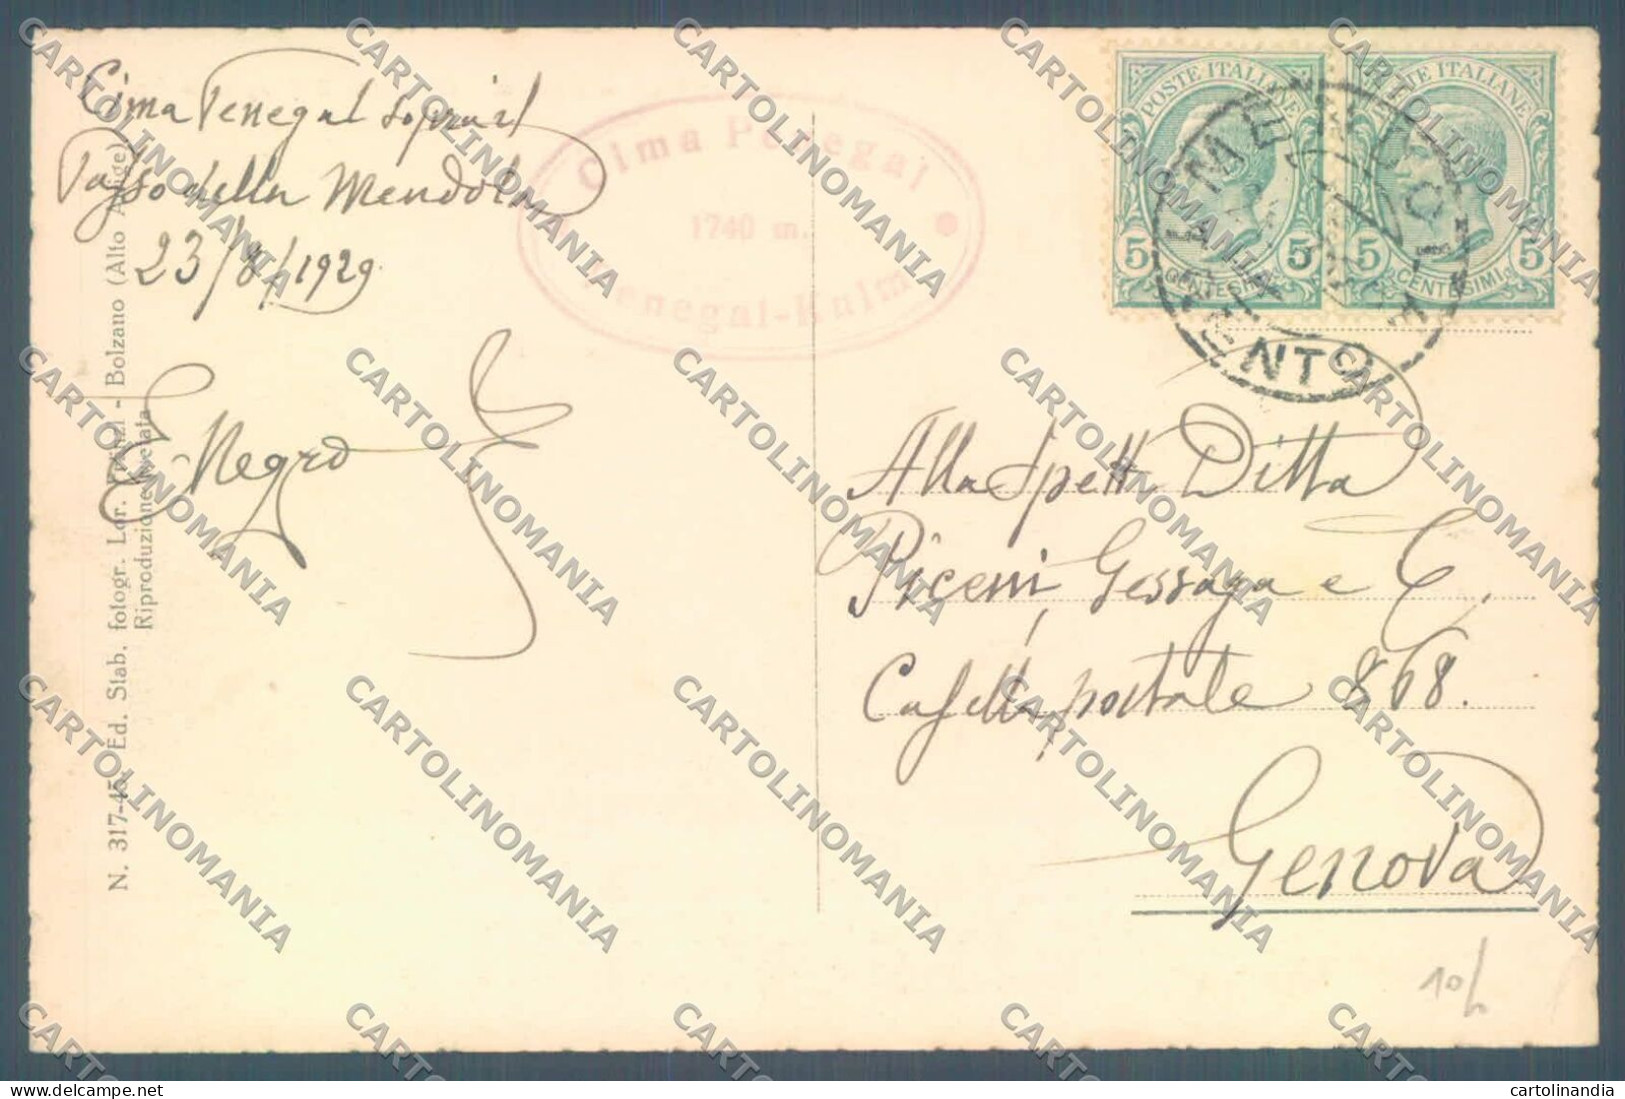 Cima Penegal sopra il
Passo della Mendola
23/8/1929
E. Negro
Cima Penegal
1740 m.
Penegal-Kulm
POSTE ITALIANE
5 5
CENTESIMI
POSTE ITALIANE
5 5
CENTESIMI
MENDOLA
TRENTO
Alla Spett. Ditta
Piceni, Gessaga e C.
Casella postale 868.
Genova
10/
N. 317-45. Ed. Stab. fotogr. Lor. Fränzl - Bolzano (Alto Adige)
Riproduzione vietata
CARTOLINOMANIA
delcampe.net
cartolinandia